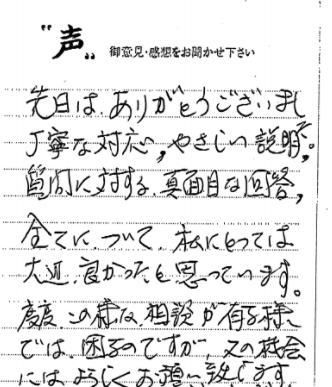 "声"
御意見・感想をお聞かせ下さい
先日は、ありがとうございまし
丁寧な対応、やさしい説明。
質問に対する、真面目な回答、
全てに、ついて、私にとっては
大辺、良かったと思っています。
度度、この様な相談が有る様
では、困るのですが、又の機会
にはよろしくお願い致します